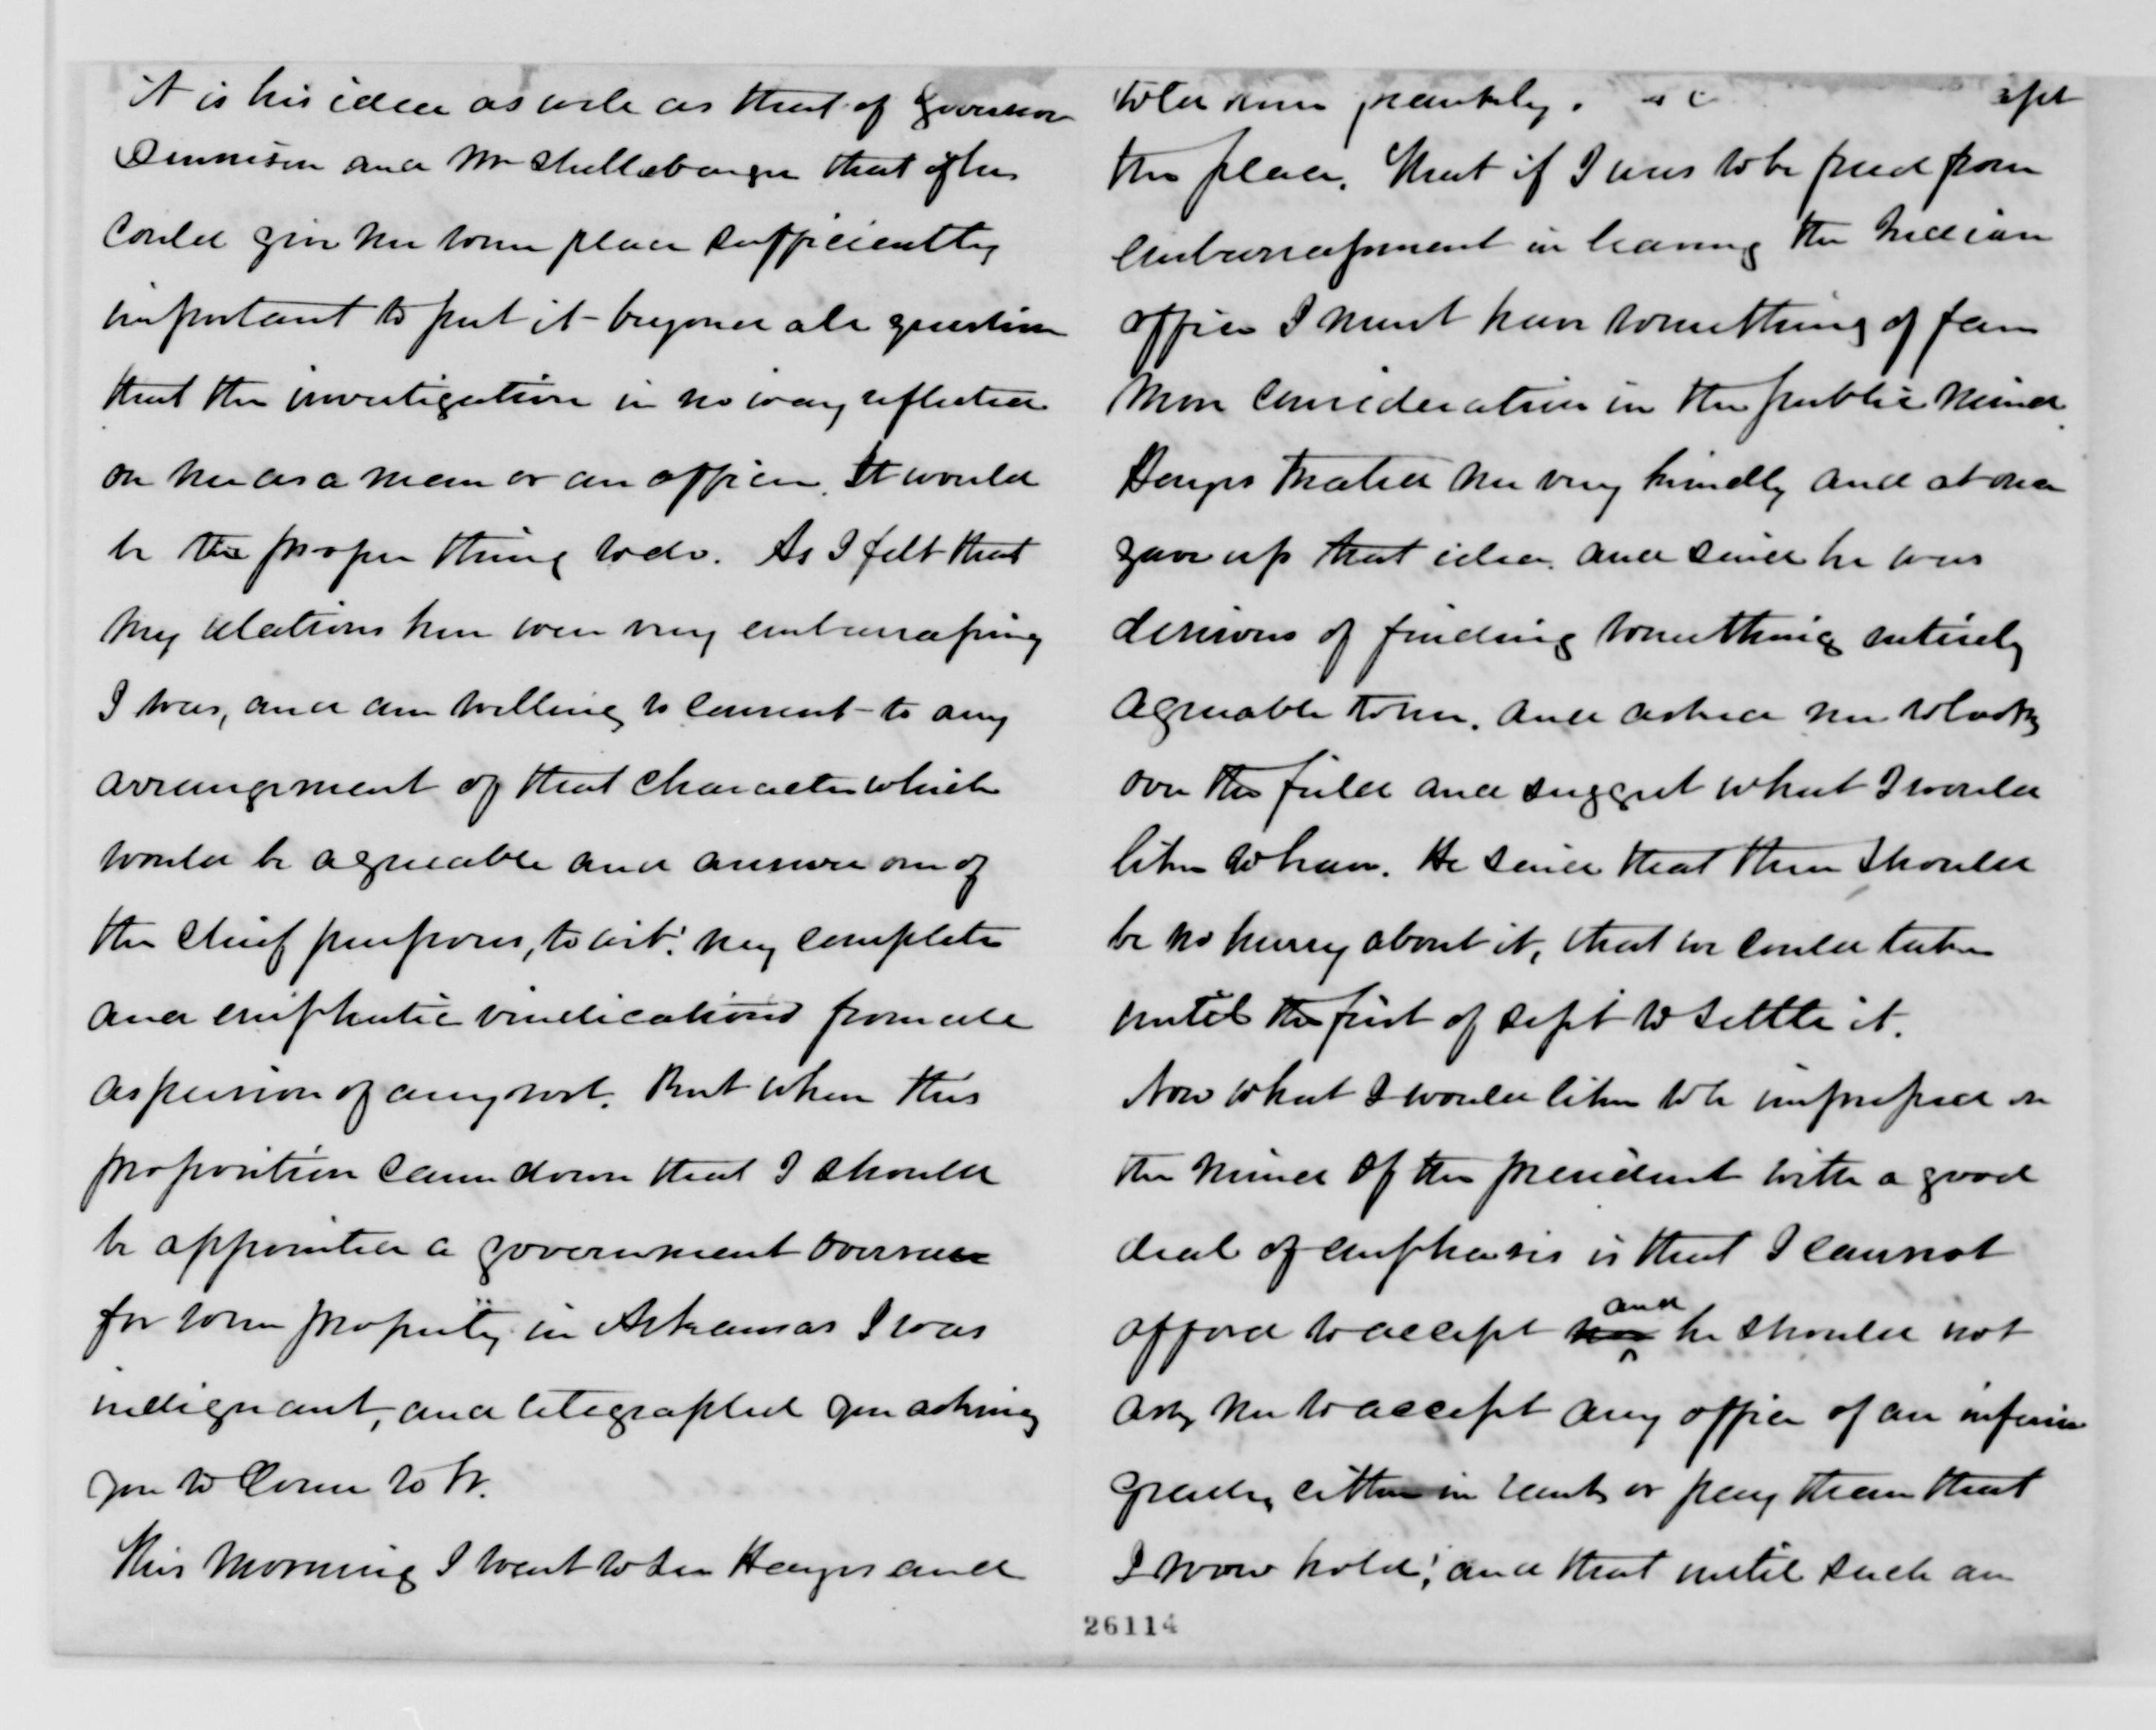 it is his idea as well as that of Governor
Dennison and Mr Shellabarger that if he
could give me some place sufficiently
important to put it beyond all question
that the investigation in no way reflected
on me as a man or an officer. It would
be the proper thing to do. As I felt that
my relations here were very embarrassing
I was, and am willing to consent to any
arrangement of that character which
would be agreeable and answer one of
the chief purposes, to wit: my complete
and emphatic vindication from all
aspersion of any sort. But when this
proposition came down that I should
be appointed a government overseer
for some property in Arkansas I was
indignant, and telegraphed you asking
you to come to W.
This morning I went to see Hayes and
told him frankly. ept
the place. That if I was to be freed from
embarrassment in leaving the Indian
office I must have something of far
more consideration in the public mind.
Hayes treated me very kindly and at once
gave up that idea. and said he was
desirous of finding something entirely
agreeable to me. and asked me to look
over the field and suggest what I would
like to have. He said that there should
be no hurry about it, that we could take
until the first of Sept to settle it.
Now what I would like to be impressed on
the mind of the president with a good
deal of emphasis is that I cannot
afford to accept and he should not
ask me to accept any office of an inferior
grade, either in rank or pay than that
I now hold; and that until such an
26114